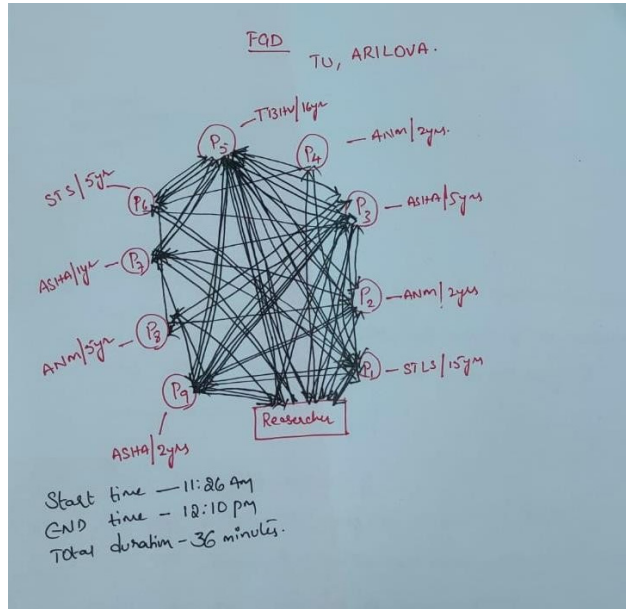 FGD
TU, ARILOVA.
P5 — TBHV/16yr
P4 — ANM/2yrs.
STS/5yr — P6
P3 — ASHA/5yrs
ASHA/1yr — P7
P2 — ANM/2yrs
ANM/5yr — P8
P1 — STLS/15yrs
P9
ASHA/2yrs
Reasercher
Start time — 11:26 Am
END time - 12:10 pm
Total duration - 36 minutes.